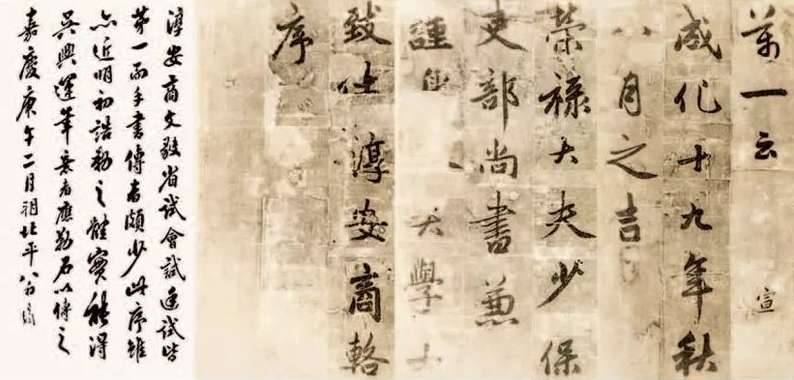 萬一云
宣
成化十九年秋
八月之吉
榮祿大夫少保
吏部尚書兼
謹身大學士
致仕淳安商輅
序
淳安商文毅省試會試廷試皆
第一而手書傳者頗少此序雖
亦近明初誥勅之體實能得
吳興運筆意者應勒石以傳之
嘉慶庚午二月朔北平